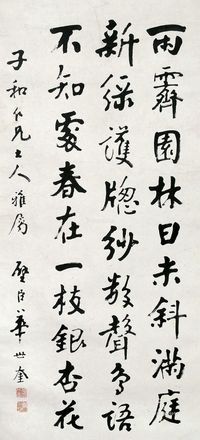 雨霽園林日未斜滿庭
新綠護牕紗數聲鳥語
不知處春在一枝銀杏花
子和仁兄大人雅屬 璧臣華世奎